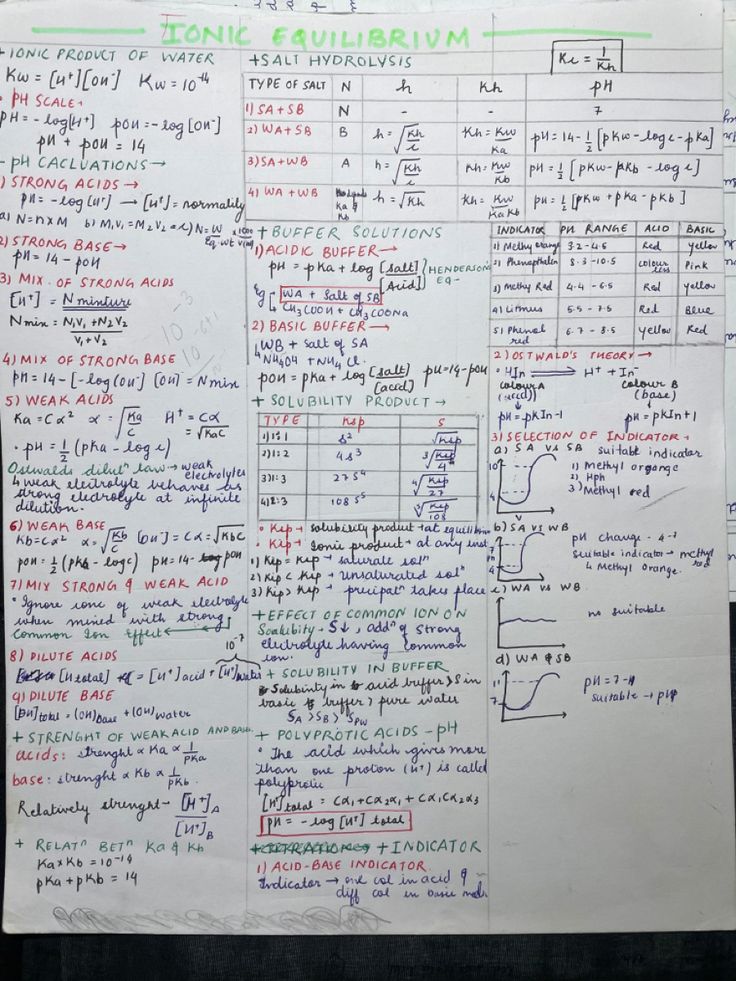 IONIC EQUILIBRIUM
+ IONIC PRODUCT OF WATER
Kw = [H⁺][OH⁻] Kw = 10⁻¹⁴
• PH SCALE →
PH = -log[H⁺] pOH = -log[OH⁻]
pH + pOH = 14
- pH CACLUATIONS →
1) STRONG ACIDS →
pH = -log[H⁺] → [H⁺] = normality
a) N = n × M b) M₁V₁ = M₂V₂ c) N = W/Eq.wt × 1000/V(ml)
2) STRONG BASE →
pH = 14 - pOH
3) MIX. OF STRONG ACIDS
[H⁺] = N mixture
N mix = N₁V₁ + N₂V₂ / V₁ + V₂
4) MIX OF STRONG BASE
pH = 14 - [-log(OH⁻)] [OH⁻] = N mix
5) WEAK ACIDS
Ka = Cα² α = √Ka/C H⁺ = Cα
= √KaC
• pH = 1/2 (pKa - log c)
Ostwalds dilutⁿ law → weak electrolytes
↳ weak electrolyte behaves as
strong electrolyte at infinite
dilution.
6) WEAK BASE
Kb = Cα² α = √Kb/C [OH⁻] = Cα = √KbC
pOH = 1/2 (pKb - log c) pH = 14 - pOH
7) MIX STRONG & WEAK ACID
• Ignore conc of weak electrolyte
when mixed with strong
Common Ion Effect ←
8) DILUTE ACIDS
[H total] = [H⁺] acid + [H⁺] water
10⁻⁷
9) DILUTE BASE
[OH] total = (OH) base + (OH) water
+ STRENGHT OF WEAK ACID AND BASE
acids: strenght ∝ Ka ∝ 1/pKa
base: strenght ∝ Kb ∝ 1/pKb.
Relatively strenght - [H⁺]A / [H⁺]B
+ RELATⁿ BETⁿ Ka & Kb
Ka × Kb = 10⁻¹⁴
pKa + pKb = 14
+ SALT HYDROLYSIS
Kc = 1/Kh
TYPE OF SALT N h Kh pH
1) SA + SB N - - 7
2) WA + SB B h = √Kh/c Kh = Kw/Ka pH = 14 - 1/2 [pKw - log c - pKa]
3) SA + WB A h = √Kh/c Kh = Kw/Kb pH = 1/2 [pKw - pKb - log c]
4) WA + WB Ka & Kb h = √Kh Kh = Kw/KaKb pH = 1/2 [pKw + pKa - pKb]
+ BUFFER SOLUTIONS
1) ACIDIC BUFFER →
pH = pKa + log [salt]/[Acid] } HENDERSON'S EQ -
Eg WA + Salt of SB
CH₃COOH + CH₃COONa
2) BASIC BUFFER →
WB + Salt of SA
NH₄OH + NH₄Cl.
pOH = pKa + log [salt]/[acid] pH = 14 - pOH
+ SOLUBILITY PRODUCT →
TYPE Ksp S
1) 1:1 s² √Ksp
2) 1:2 4s³ ∛Ksp/4
3) 1:3 27s⁴ ∜Ksp/27
4) 2:3 108s⁵ ⁵√Ksp/108
• Ksp → solubility product → at equilibrium
• Kip → Ionic product → at any inst
1) Kip = Ksp → saturate solⁿ
2) Kip < Ksp → Unsaturated solⁿ
3) Kip > Ksp → precipatⁿ takes place
+ EFFECT OF COMMON ION ON
Soulibity → S↓, addⁿ of strong
electrolyte having common
ion.
+ SOLUBILITY IN BUFFER
Solubinty in acid buffer > S in
basic buffer > pure water
SA > SB > SPW
+ POLYPROTIC ACIDS - pH
• The acid which gives more
than one proton (H⁺) is called
polyprotic
[H⁺] total = Cα₁ + Cα₂α₁ + Cα₁Cα₂α₃
pH = -log [H⁺] total
+ INDICATOR
1) ACID-BASE INDICATOR.
Indicator → one col in acid &
diff col in basic
INDICATOR PH RANGE ACID BASIC
1) Methyl orange 3.2 - 4.5 Red Yellow
2) Phenopthalein 8.3 - 10.5 colourless Pink
3) Methyl Red 4.4 - 6.5 Red yellow
4) Litmus 5.5 - 7.5 Red Blue
5) Phenol red 6.7 - 8.5 Yellow Red
2) OSTWALD'S THEORY →
• HIn ⇌ H⁺ + In⁻
colour A (acid) colour B (base)
pH = pKIn - 1 pH = pKIn + 1
3) SELECTION OF INDICATOR →
a) SA VS SB suitable indicator
10 1) Methyl orgonge
2) Hph
4 3) Methyl red
V
b) SA VS WB pH change - 4-7
7 suitable indicator → methyl red
4 & Methyl Orange.
c) WA VS WB
no suitable
d) WA & SB
11 pH = 7 - 11
7 suitable → pHph